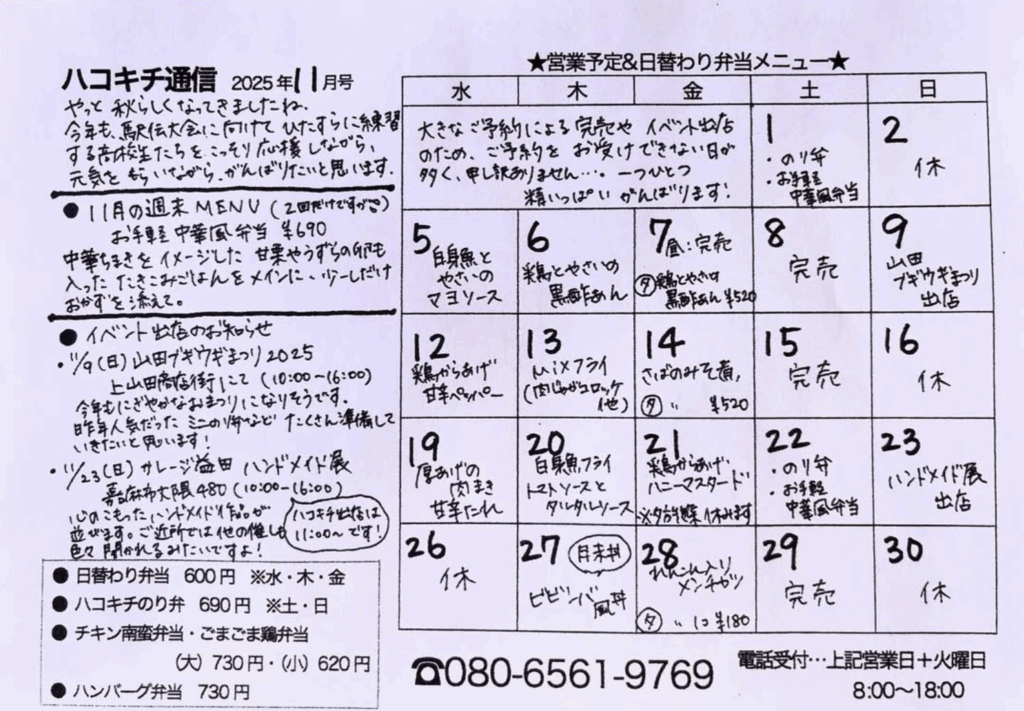 ハコキチ通信 2025年11月号
やっと秋らしくなってきましたね。
今年も、駅伝大会に向けてひたすらに練習
する高校生たちをこっそり応援しながら、
元気をもらいながら、がんばりたいと思います。
● 11月の週末MENU (2回だけですが)
お手軽中華風弁当 ¥690
中華ちまきをイメージした 甘栗やうずらの卵も
入ったたきこみごはんをメインに、少しだけ
おかずを添えて。
● イベント出店のお知らせ
・11/9(日)山田ブギウギまつり2025
上山田商店街にて (10:00~16:00)
今年もにぎやかなおまつりになりそうです。
昨年人気だった ミニのり弁など たくさん準備して
いきたいと思います!
・11/23(日) ガレージ益田 ハンドメイド展
嘉麻市大隈480 (10:00~16:00)
心のこもったハンドメイド作品が
並びます。ご近所では他の催しも
色々開かれるみたいですよ!
ハコキチ出店は
11:00~です!
● 日替わり弁当 600円 ※水・木・金
● ハコキチのり弁 690円 ※土・日
● チキン南蛮弁当・ごまごま鶏弁当
(大) 730円・(小) 620円
● ハンバーグ弁当 730円
★営業予定&日替わり弁当メニュー★
水 木 金 土 日
大きなご予約による完売や イベント出店
のため、ご予約を お受けできない日が
多く、申し訳ありません…。一つひとつ
精いっぱい がんばります!
1
・のり弁
・お手軽
中華風弁当
2
休
5
白身魚と
やさいの
マヨソース
6
鶏とやさいの
黒酢あん
7 昼:完売
夕 鶏とやさいの
黒酢あん ¥520
8
完売
9
山田
ブギウギまつり
出店
12
鶏からあげ
甘辛ペッパー
13
Mixフライ
(肉じゃがコロッケ
他)
14
さばのみそ煮
夕 〃 ¥520
15
完売
16
休
19
厚あげの
肉まき
甘辛だれ
20
白身魚フライ
トマトソースと
タルタルソース
21
鶏からあげ
ハニーマスタード
休みます
22
・のり弁
・お手軽
中華風弁当
23
ハンドメイド展
出店
26
休
27 月末丼
ビビンバ風丼
28
れんこん入り
メンチカツ
夕 〃 1コ ¥180
29
完売
30
休
☎080-6561-9769
電話受付…上記営業日+火曜日
8:00~18:00